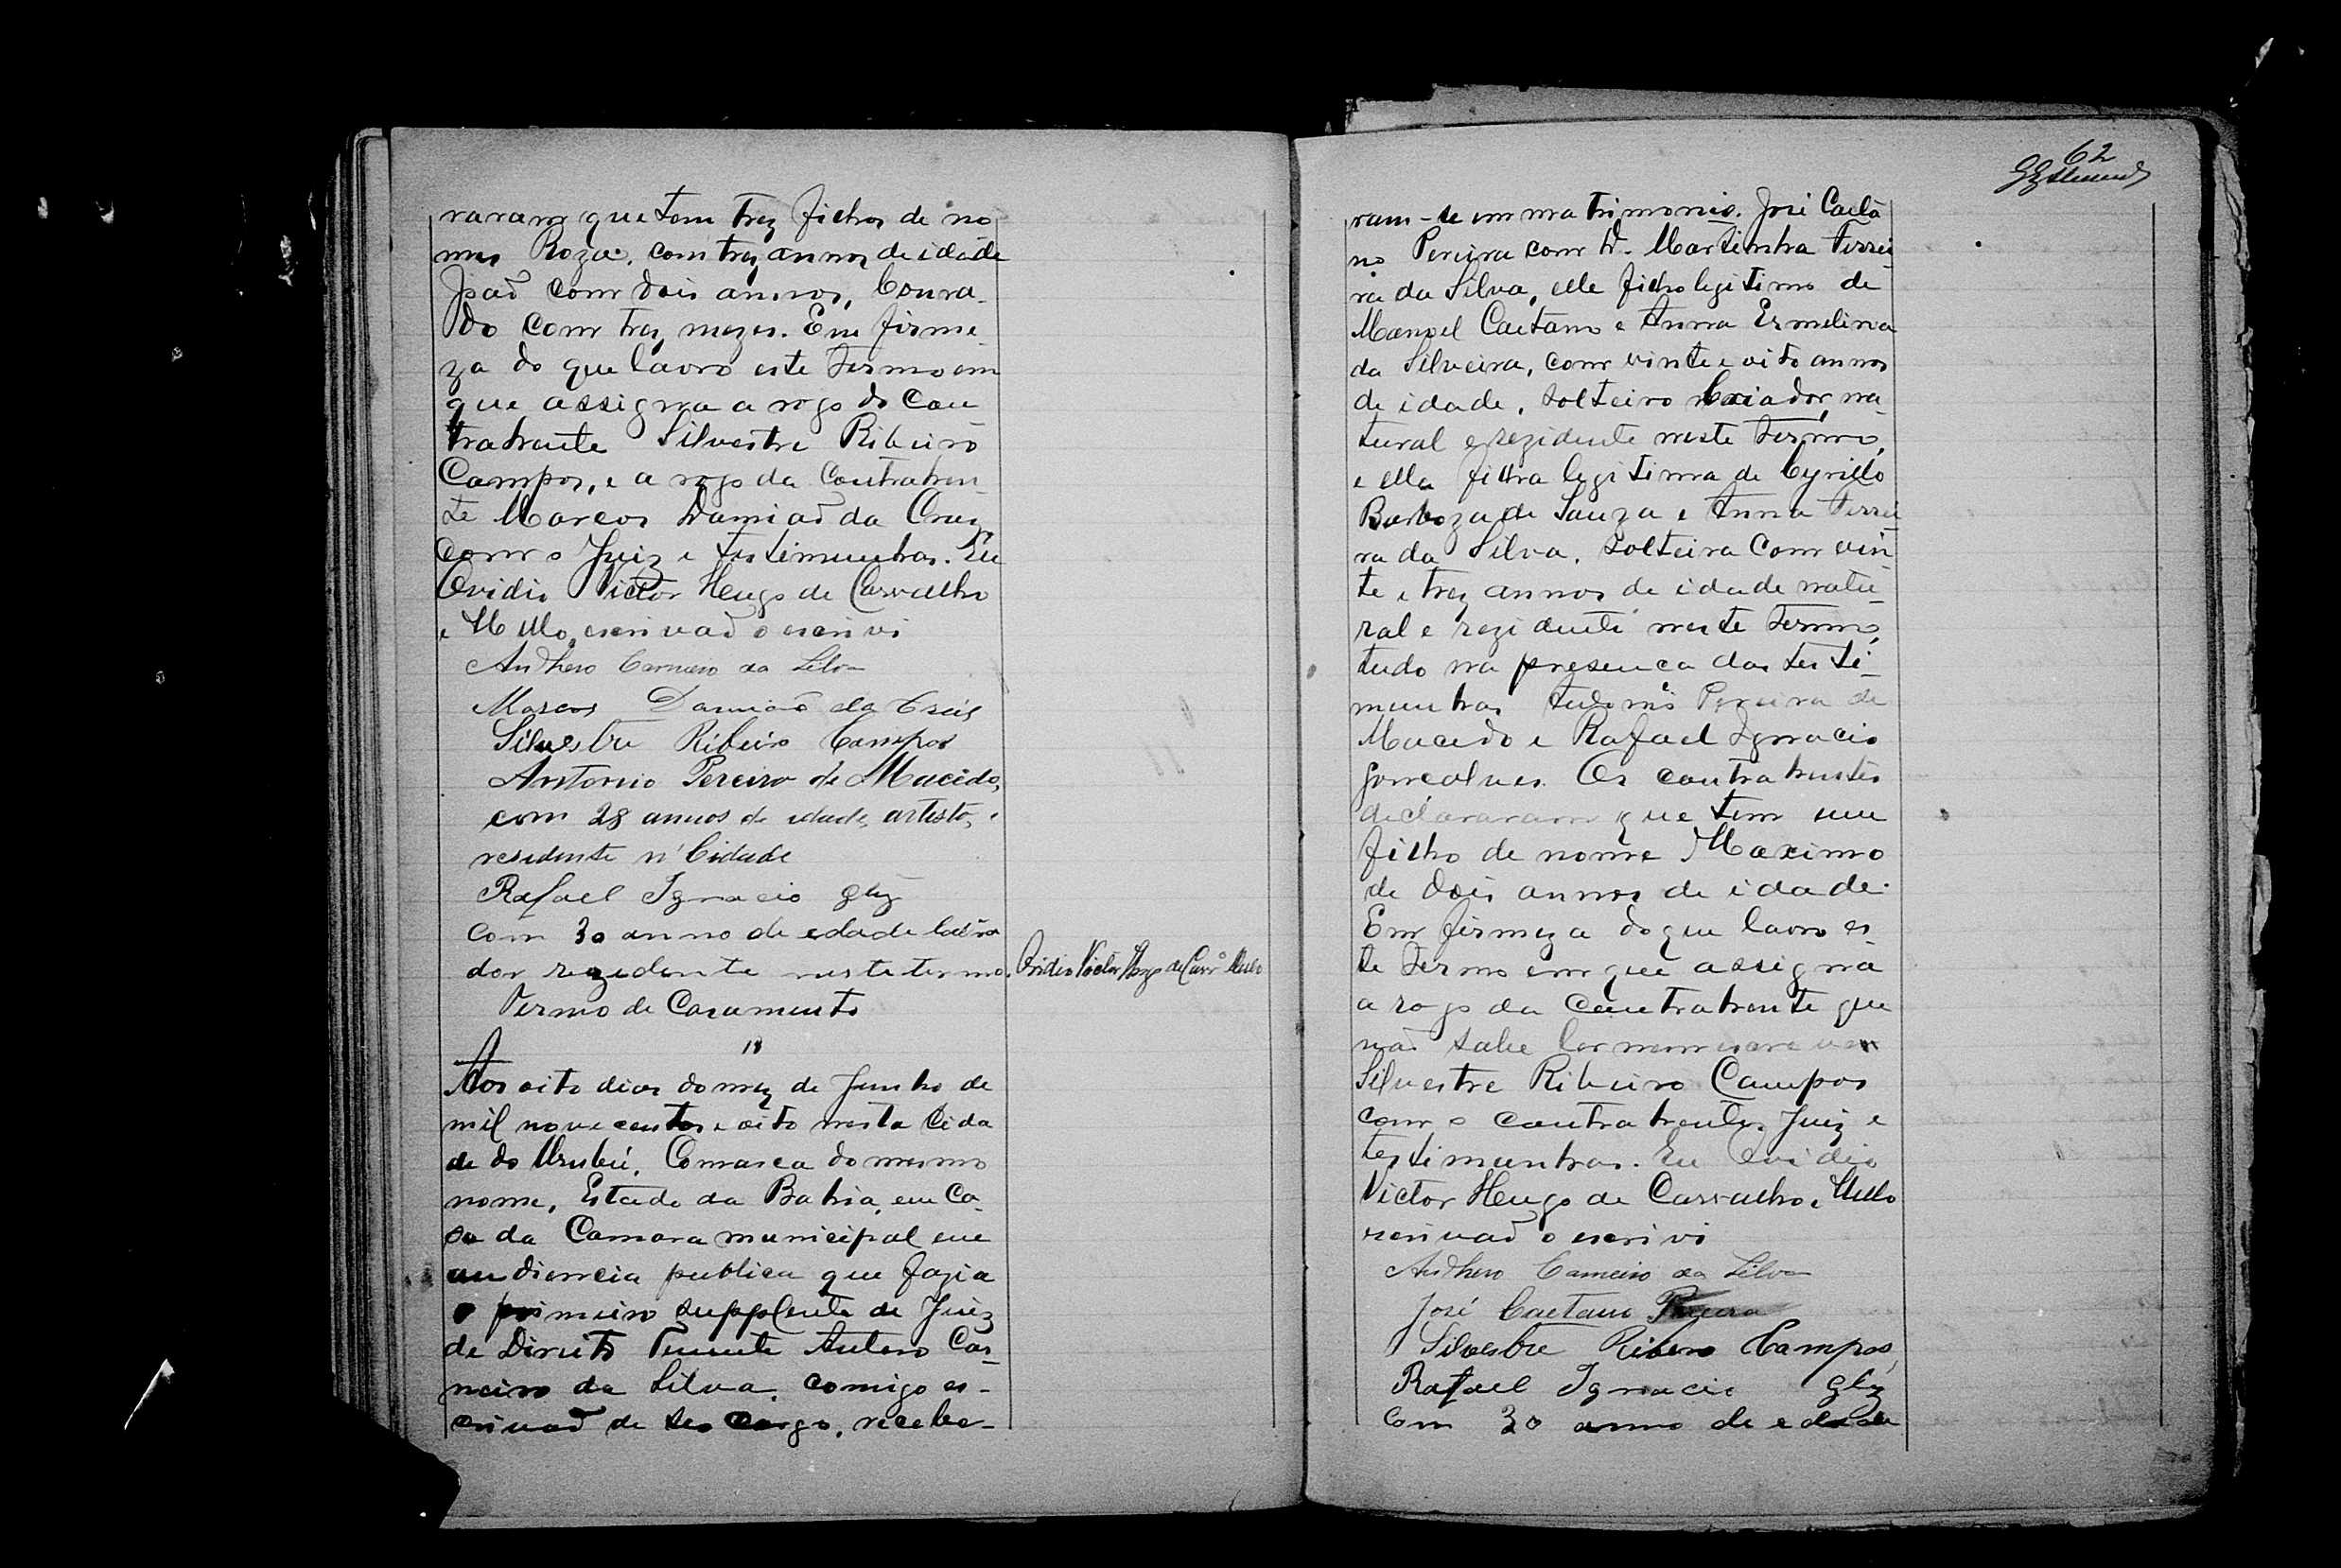 raram que tem trez filhos de no
mes Roza, com trez annos de idade
Joaõ com dois annos, Conra-
do com trez mezes. Em firme-
za do que lavro este termo em
que assigna a rogo do Con
trahente Silvestre Ribeiro
Campos, e a rogo da Contrahen-
te Marcos Damiaõ da Cruz
com o Juiz e testimunhas. Eu
Ovidio Victor Hugo de Carvalho
e Mello, escrivaõ o escrivi
Anthero Carneiro da Silva
Marcos Damiaõ da Crús
Silvestre Ribeiro Campos
Antonio Pereira de Macêdo,
com 28 annos de idade, artista, e
residente n'Cidade
Rafael Ignacio Glz
com 30 anno de edade lavra
dor rezidente neste termo. Ovidio Victor Hugo de Carvº Mello
Termo de Casamento
18
Aos oito dias do mez de Junho de
mil nove centos e oito nesta Cida
de do Urubú, Comarca do mesmo
nome, Estado da Bahia, em Ca-
sa da Camara municipal em
audiencia publica que fazia
o primeiro supplente de Juiz
de Direito Tenente Antero Car-
neiro da Silva, comigo es-
crivaõ de seo cargo, recebe-
62
ram-se em matrimonio. José Caeta
no Pereira com D. Martinha Ferrei-
ra da Silva, elle filho legitimo de
Manoel Caetano e Anna Ermelina
da Silveira, com vinte e oito annos
de idade, solteiro Criador, na-
tural e rezidente neste termo,
e ella filha legitima de Cyrillo
Barboza de Souza e Anna Ferrei-
ra da Silva, solteira com vin
te e trez annos de idade natu-
ral e rezidente neste termo,
tudo na presenca das testi-
munhas Antonio Pereira de
Macedo e Rafael Ignacio
Goncalves. Os contrahentes
declararam que tem um
filho de nome Maximo
de dois annos de idade.
Em firmeza do que lavro es-
te termo em que assigna
a rogo da contrahente que
naõ sabe ler nem escrever
Silvestre Ribeiro Campos
com o contrahente, Juiz e
testimunhas. Eu Ovidio
Victor Hugo de Carvalho e Mello
escrivaõ o escrivi
Anthero Carneiro da Silva
José Caetano Pereira
Silvestre Ribeiro Campos,
Rafael Ignacio Glz
com 30 anno de edade